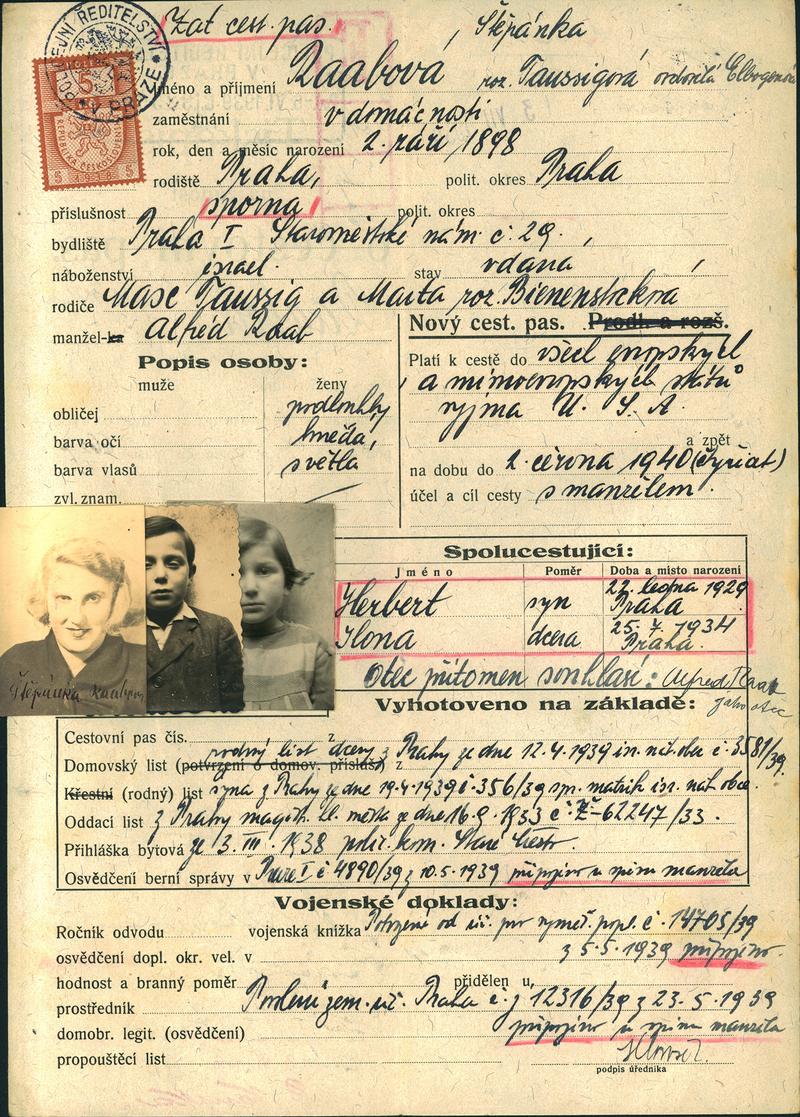 Zat cest. pas.
POLICEJNÍ ŘEDITELSTVÍ V PRAZE
5
REPUBLIKA ČESKOSLOVENSKÁ
Štěpánka
Jméno a příjmení Raabová roz. Taussigová
zaměstnání v domácnosti
rok, den a měsíc narození 2. září 1898
rodiště Praha, polit. okres Praha
příslušnost sporná polit. okres
bydliště Praha I Staroměstské nám. č. 29.
náboženství israel. stav vdaná
rodiče Max Taussig a Marta roz.
manžel-ka Alfréd Raab
Nový cest. pas. Prodl. a rozš.
Popis osoby:
muže ženy
obličej podlouhlý
barva očí hnědá,
barva vlasů světlá
zvl. znam.
Platí k cestě do všech evropských
a mimoevropských států
vyjma U. S. A.
a zpět
na dobu do 2. června 1940
účel a cíl cesty s manželem.
Štěpánka Raabová
Spolucestující:
Jméno Poměr Doba a místo narození
Herbert syn 22. ledna 1929 Praha
Ilona dcera 25. 7. 1934 Praha.
Otec přítomen souhlasí: Alfred Raab
jako otec
Vyhotoveno na základě:
Cestovní pas čís. z
rodný list dcery z Prahy ze dne 12.4.1939 č. 3581/39.
Domovský list (potvrzení o domov. přísluš.) z
Křestní (rodný) list syna z Prahy ze dne 19.4.1939 č. 356/39
Oddací list z Prahy magistr. hl. města ze dne 16.9.1933 62247/33.
Přihláška bytová ze 3. III. 1938 polic. kom. Staré Město
Osvědčení berní správy v Praze I č 4890/39 z 10.5.1939 připojeno u spisu manžela
Vojenské doklady:
Ročník odvodu vojenská knížka Potvrzení od popl. č. 14705/39
osvědčení dopl. okr. vel. v z 5.5.1939 připojeno.
hodnost a branný poměr přidělen u
prostředník Povlení zem. úř. Praha 12316/39 z 23.5.1939
domobr. legit. (osvědčení) připojeno u spisu manžela
propouštěcí list
podpis úředníka